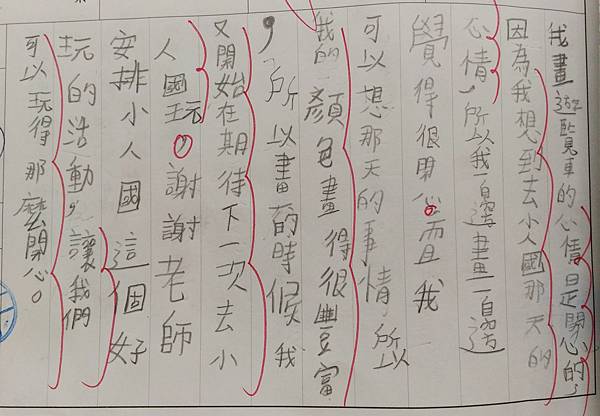 我畫遊覽車的心情是開心的，
因為我想到去小人國那天的
心情，所以我一邊畫一邊
覺得很開心。而且我
可以想那天的事情，所以
我的顏色畫得很豐富
，所以畫的時候我
又開始在期待下一次去小
人國玩。謝謝老師
安排小人國這個好
玩的活動，讓我們
可以玩得那麼開心。